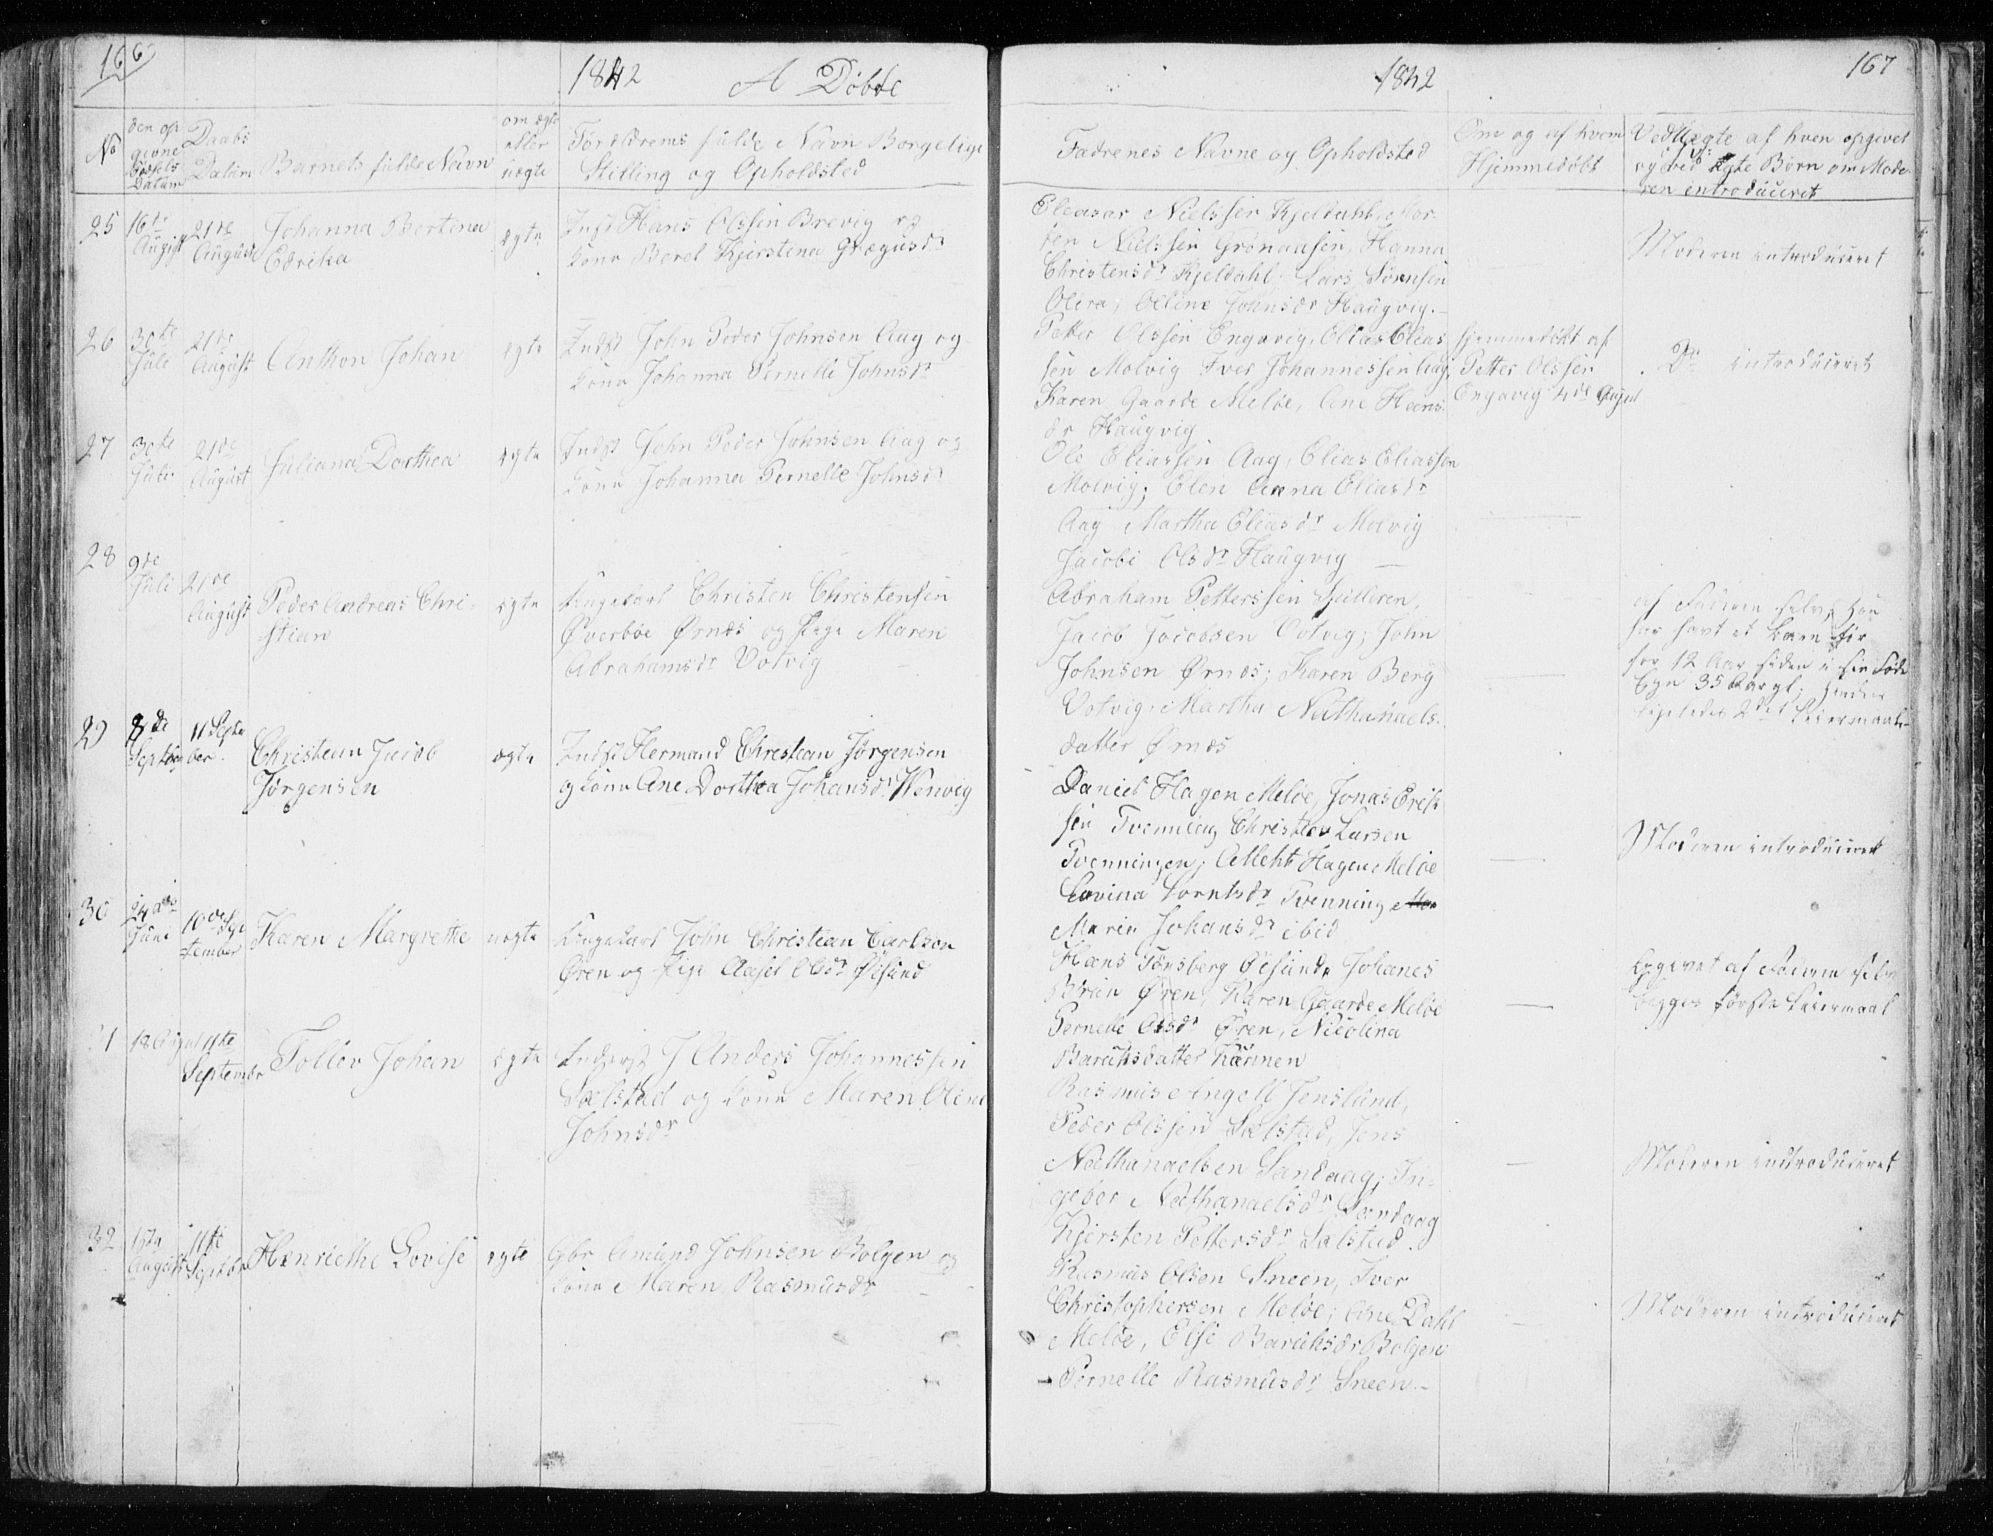 166
1842 A Døbte
No
den op
givne
Fødsels
Datum
Daabs
Datum
Barnets fulde Navn
om ægte
eller
uægte
Forældrenes fulde Navn Borgelige
Stilling og Opholdsted
25
16de
August
21de
August
Johanna Bertina
Edrika
ægte
Indst Hans Olssen Brevig og
Kone Berel Kjerstina Gregusdr
26
30te
Juli
21de
August
Anthon Johan
ægte
Indst John Peder Johnsen Aag og
Kone Johanna Pernelle Johnsdr
27
30te
Juli
21de
August
Juliana Dorthea
ægte
Indst John Peder Johnsen Aag og
Kone Johanna Pernelle Johnsdr
28
9de
Juli
21de
August
Peder Andreas Chri-
stian
Ungekarl Christen Christensen
Øverbøe Ørnæs og Pige Maren
Abrahamsdr Votvig
29
September
11 Septe
ber.
Christian Jacob
Jørgensen
ægte
Indst Hermand Christian Jørgensen
og Kone Ane Dorthea Johansdr Wenvig
30
24de
Juni
10de Sep
tember
Karen Margrethe
uægte
Ungekarl John Christian Carlson
Øren og Pige Aasel Olsdr Øisund
31
18 August
11te
September
Tollev Johan
ægte
Inderst J Anders Johannessen
Sælstad og Kone Maren Oline
Johnsdr
32
August
11te
Septbr
Henriethe Lovise
ægte
Gbr Amund Johnsen Bolgen og
Kone Maren Rasmusdr
167
1842
Fadrenes Navne og Opholdsted
Om og af hvem
Hjemmedøbt
Ved Uægte af hven opgivet
og ved ægte Børn om Mode-
ren introduceret
Eleasar Nielssen Kjeldahl, Mor-
ten Nielssen Grønaasen, Hanna
Christensdr Kjeldahl, Lars Sørensen
Oline Johnsdr Haugvig.
Moderen introduceret
Petter Olssen Engavig, Olias Elias
sen Molvig Iver Johannessen Aag,
Karen Gaarde Meløe, Ane Hans-
dr Haugvig
Hjemmedøbt af
Petter Olssen
Engavig 4de August
Do introduceret
Ole Eliassen Aag, Elias Eliassen
Molvig, Elen Anna Eliasdr
Aag Martha Eliasdr Molvig
Jacobi Olsdr Haugvig
Abraham Petterssen
Jacob Jacobsen Votvig; John
Johnsen Ørnæs; Karen Berg
Votvig, Martha Nathanaels-
datter Ørnæs
af Faderen selv, han
har havt et Barn før
for 12 Aar siden i sin Føde
Egn 35 Aar gl.
ligeledes 2det Leiermaal
Daniel Hagen Meløe, Jonas Erik
sen Tvenning Christen Larsen
Tvenningen, Hagen Meløe
Lovina Lorntsdr Tvenning
Marie Johansdr ibid
Moderen introduceret
Hans Tønsberg Øisund, Johanes
Brun Øren, Karen Gaarde Meløe
Pernelle Olsdr Øren, Nicolina
Baruksdatter
Opgivet af Faderen selv
begges første Leiermaal
Rasmus Angell Jenslund,
Peder Olssen Sælstad, Jens
Nathanaelsen Sandaag, In-
gebor Nathanaelsdr Sandaag
Kjersten Pettersdr Sælstad.
Moderen introduceret
Rasmus Olsen Sneen, Iver
Christophersen Meløe, Ane Dahl
Meløe, Else Baruksdr Bolgen
Pernelle Rasmusdr Sneen.
Moderen introduceret